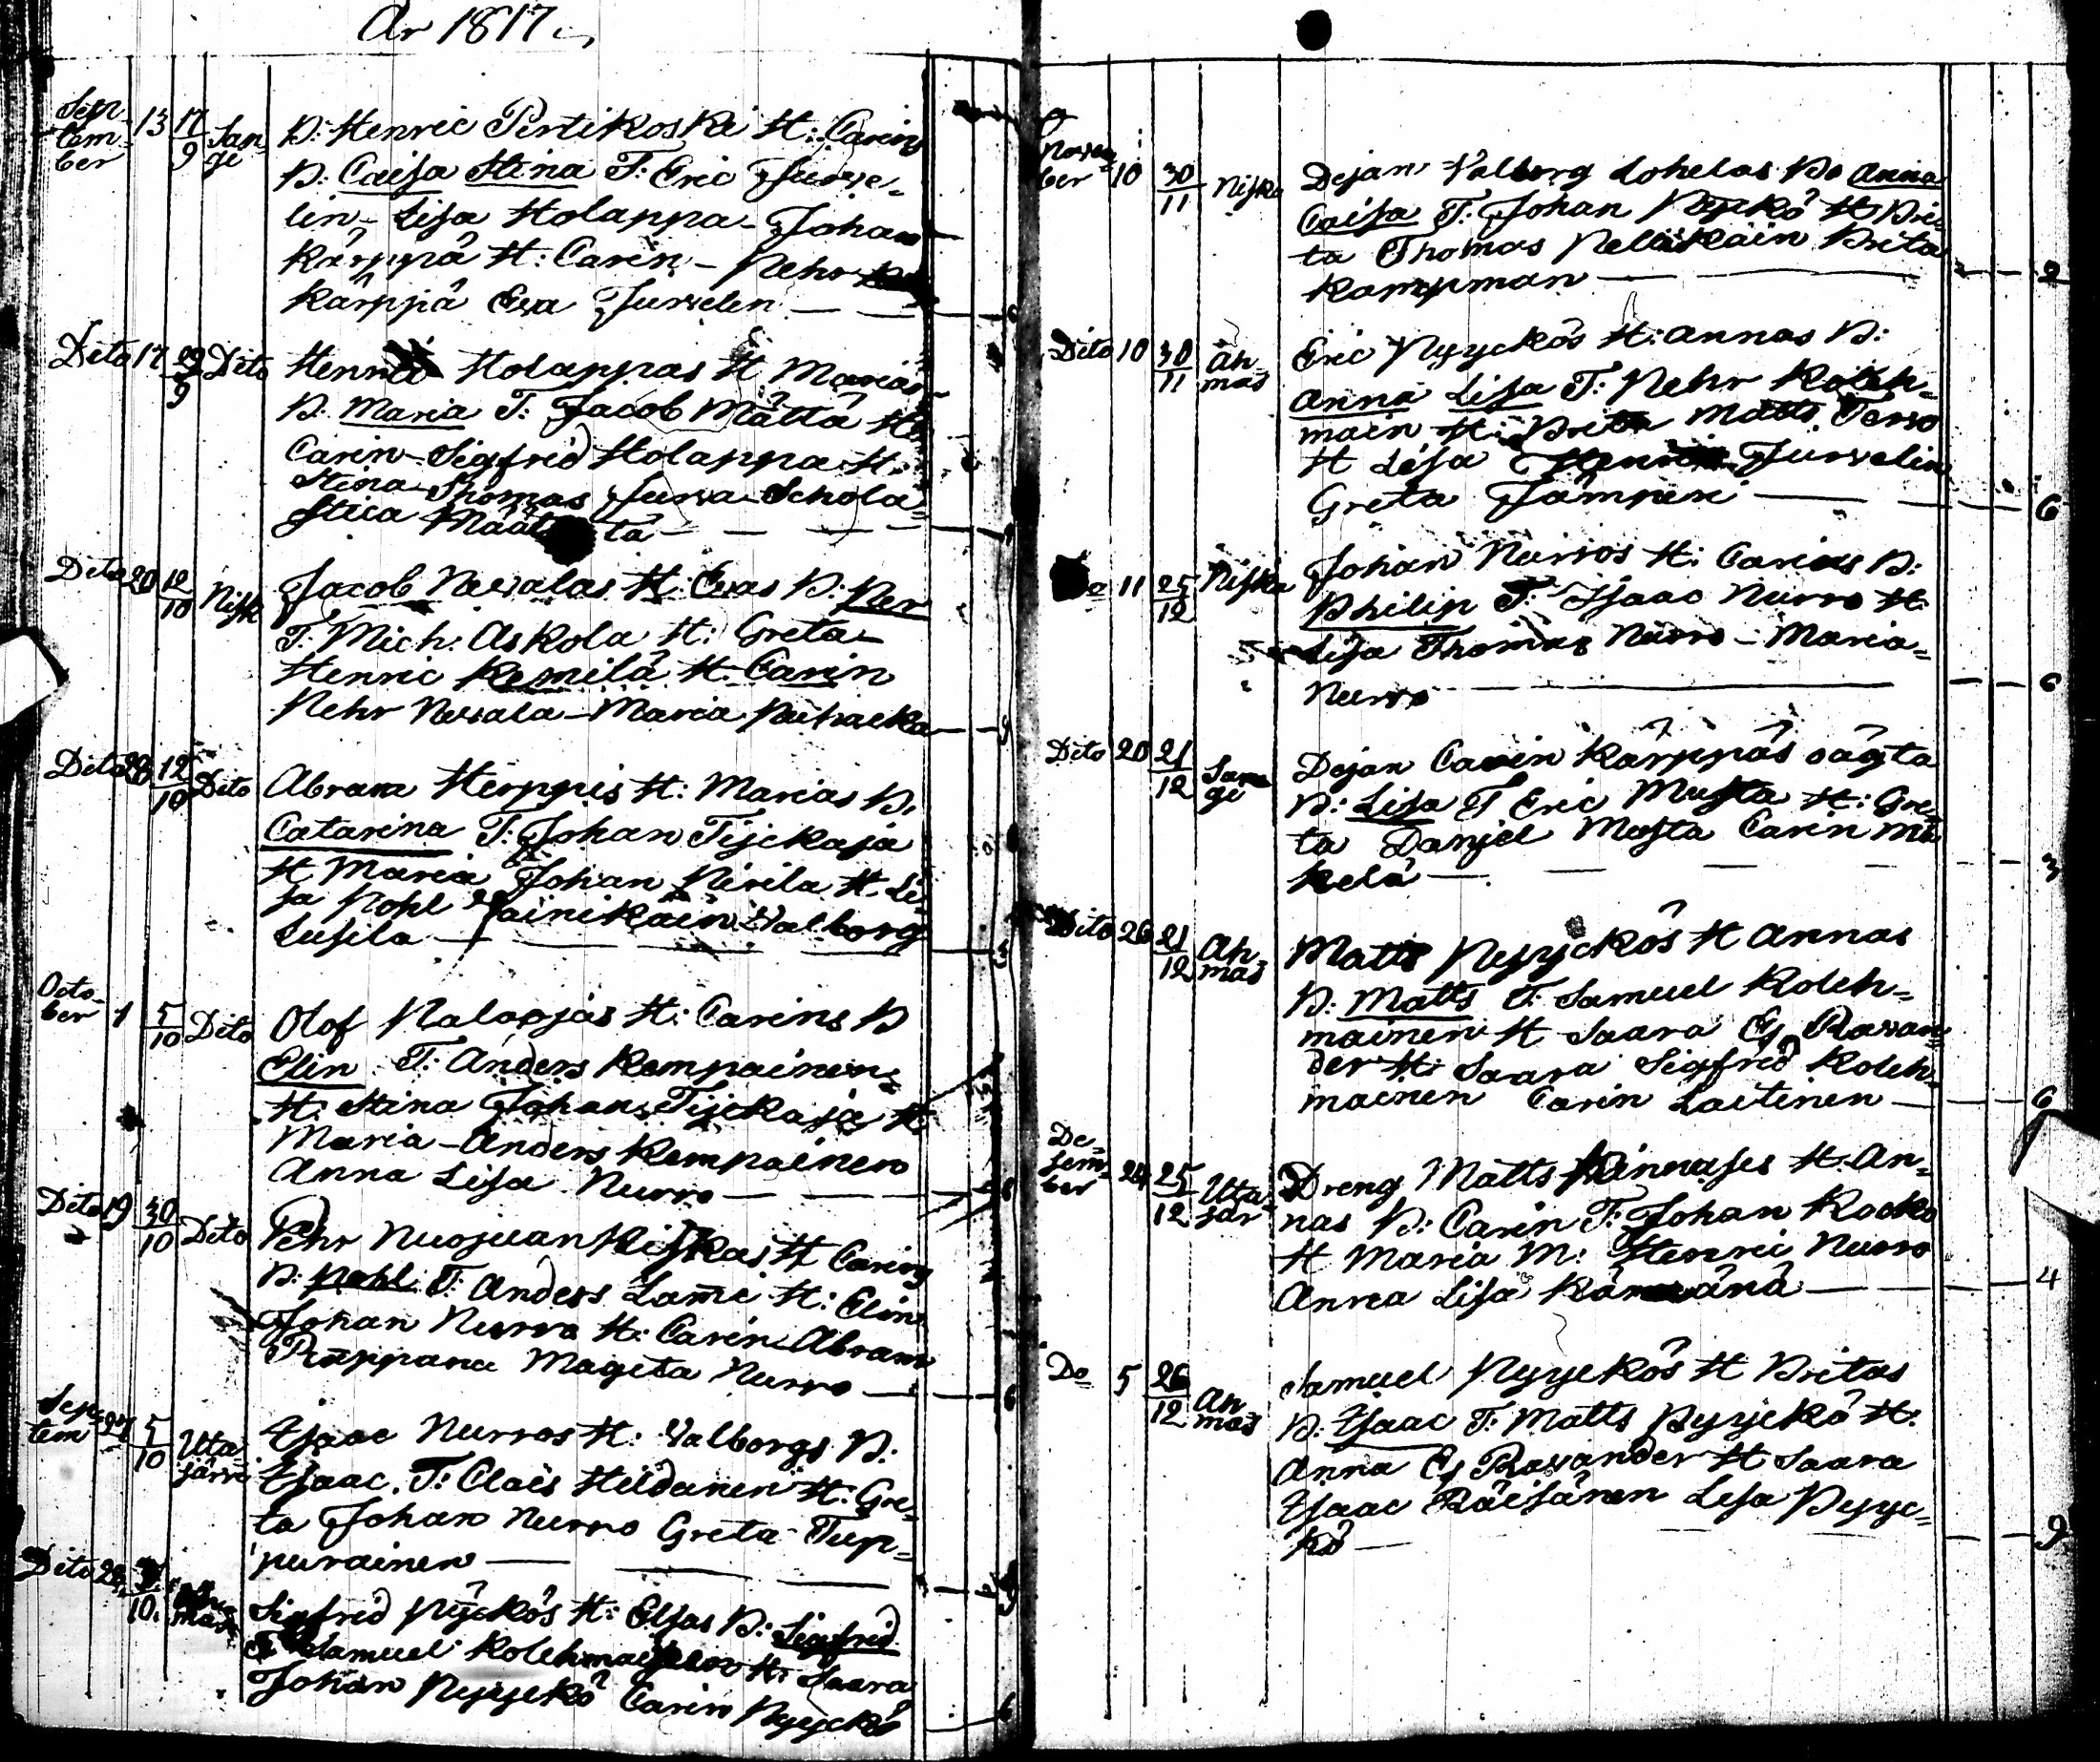 År 1817
Sep-
tem-
ber 13 17/9 San-
gi
B: Henric Pertikoski H: Carins
B: Caisa Stina T: Eric Jurve-
lin - Lisa Holappa - Johan
Kärppä H: Carin - Pehr
Kärppä Eva Jurvelin
Dito 17 Dito
Holappas H Marias
B: Maria T: Jacob Mättä H
Carin - Sigfrid Holappa H:
Stina - Thomas Jurva - Schola-
stica Määttä
Dito 20 12/10 Nisk
Jacob Nevalas H: Evas B: Per
T: Mich: Askola H: Greta -
Henric Kemilä H. Carin
Pehr Nevala - Maria
Dito 28 12/10 Dito
Abram Herppis H: Marias B:
Catarina T: Johan Tijckaja
H Maria Johan Pirila H. Li-
sa Pohl Valborg
Lusila
Octo-
ber 1 5/10 Dito
Olof H: Carins B
Elin T: Anders Kempainen
H: Stina Johan Tijckaja H.
Maria - Anders Kempainen
Anna Lisa Nurro
Dito 19 30/10 Dito
Pehr Nuojuan Niskas H Carins
B: Pohl T: Anders Lami H: Elin
Johan Nurro H: Carin Abram
Mageta Nurro
Sep-
tem 24 5/10 Uta
järvi
Isaac Nurros H: Valborgs B:
Isaac. T: Claës Hildanen H: Gre-
ta Johan Nurro Greta Tup-
purainen
Dito 28
Sigfrid Pyckös H: Elsas B: Sigfrid
T Samuel H: Saara
Johan Pyyckö Carin Pyyckö
Novem-
ber 10 30/11 Niska
Dejan Valborg Lohelas B: Anna
Caisa T: Johan Pyckö H Bri-
ta Thomas Pelikäin Brita
Kampman 2
Dito 10 30/11 Ah-
mas
Eric Pyyckös H: Annas B:
Anna Lisa T: Pehr Koleh-
main H: Brita Matts Tervo
H Lisa Jurvelin
Greta Jämpen 6
11 25/12 Niska
Johan Nurros H: Carins B:
Philip T: Isaac Nurro H:
Lisa Thomas Nurro - Maria
Nurro 6
Dito 20 21/12 San
gi
Dejan Carin Kärppäs oägta
B: Lisa T Eric Musta H: Gre-
ta Danjel Musta Carin Mä
kelä 3
Dito 26 21/12 Ah-
mas
Matts Pyyckös H Annas
B: Matts T: Samuel Koleh-
mainen H Saara Ej Ravan-
der H: Saara Sigfrid Koleh-
mainen Carin Laitinen 6
De-
sem-
ber 24 25/12 Uta-
jär
Dreng Matts H. An-
nas B: Carin T: Johan
H Maria M: Henric Nurro
Anna Lisa 4
Do 5 26/12 Ah
mas
Samuel Pyyckös H Britas
B: Isaac T: Matts Pyyckö H:
Anna Ej Ravander H Saara
Isaac Räisänen Lisa Pyyc-
kö 9